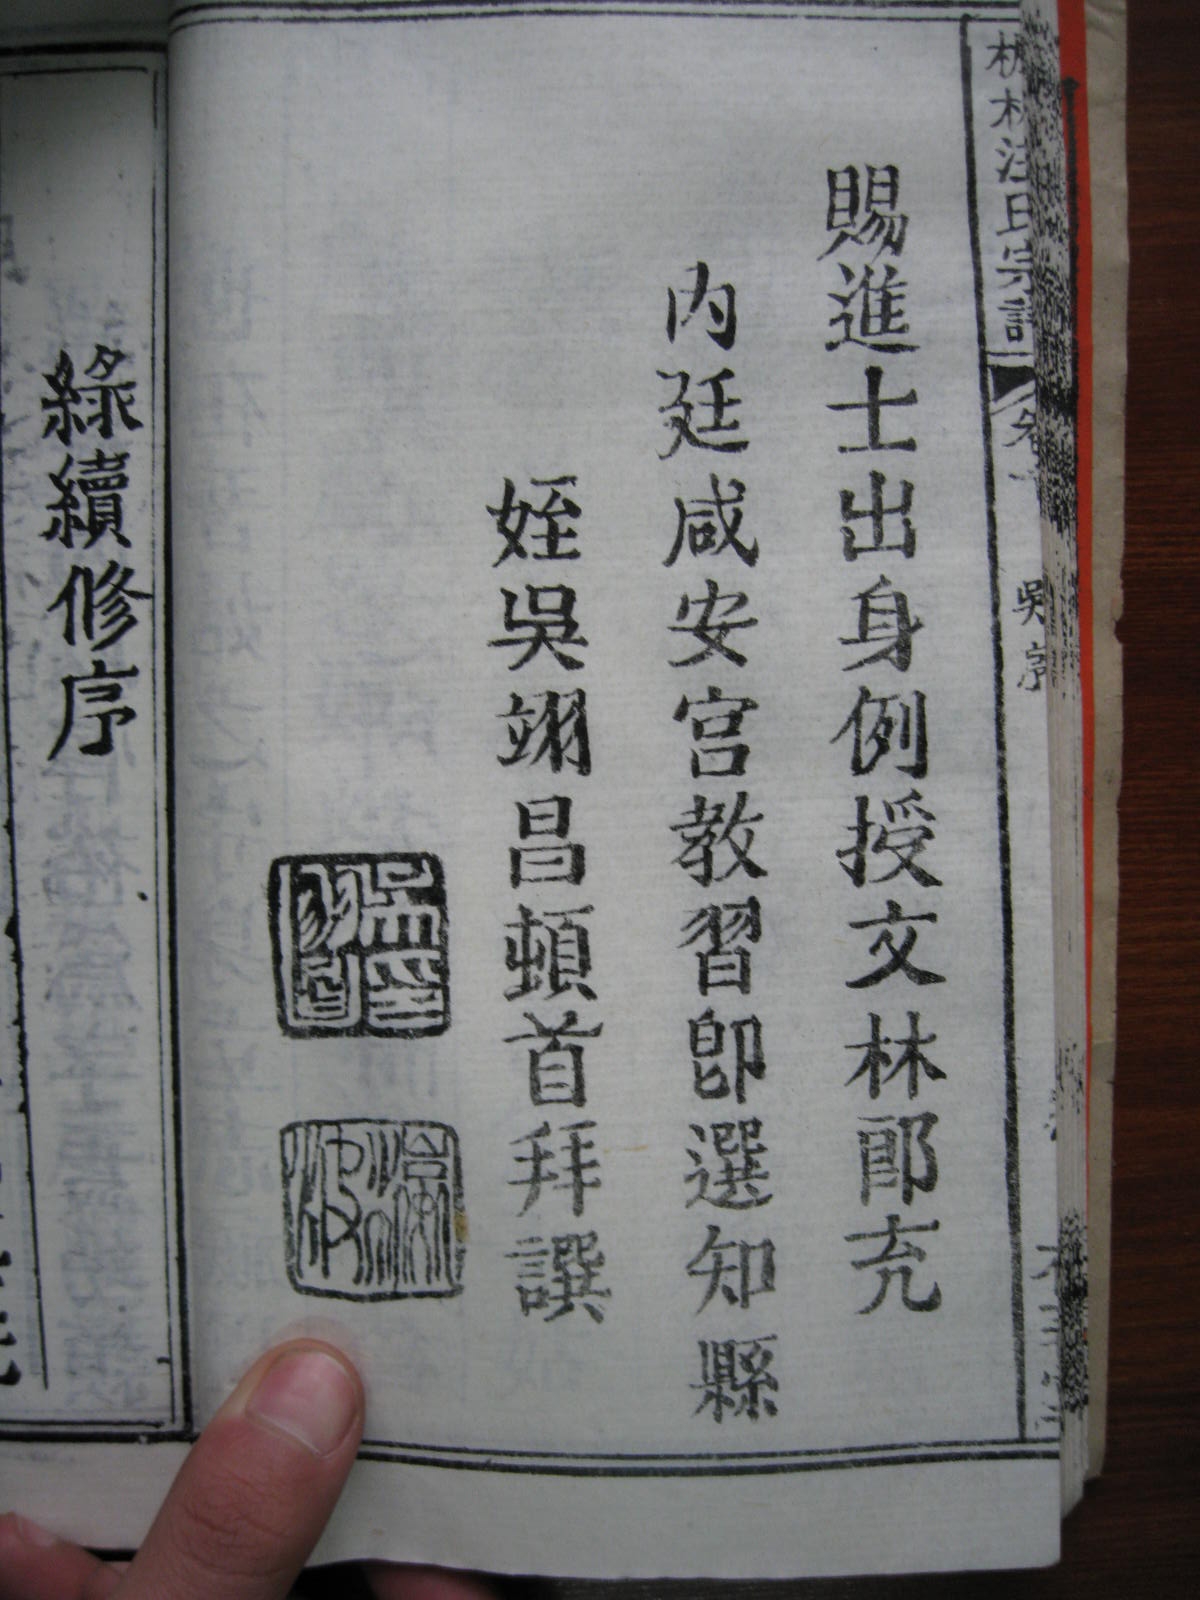 汪氏宗譜
吳序
賜進士出身例授文林郎充
內廷咸安宮教習即選知縣
姪吳翊昌頓首拜撰
續修序